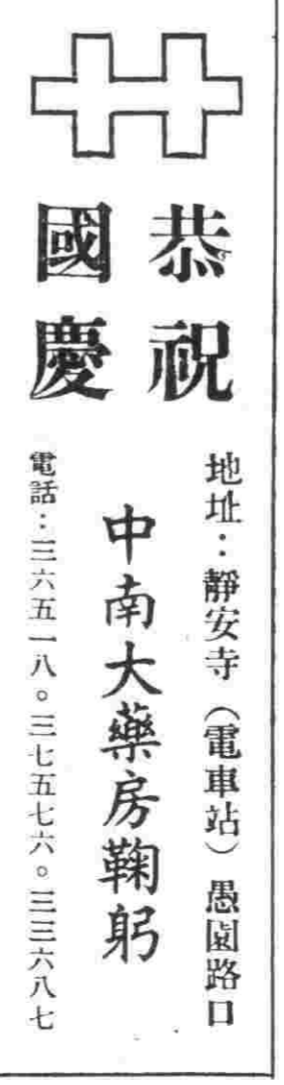 恭祝
國慶
地址：靜安寺（電車站）愚園路口
中南大藥房鞠躬
電話：三六五一八。三七五七六。三三六八七